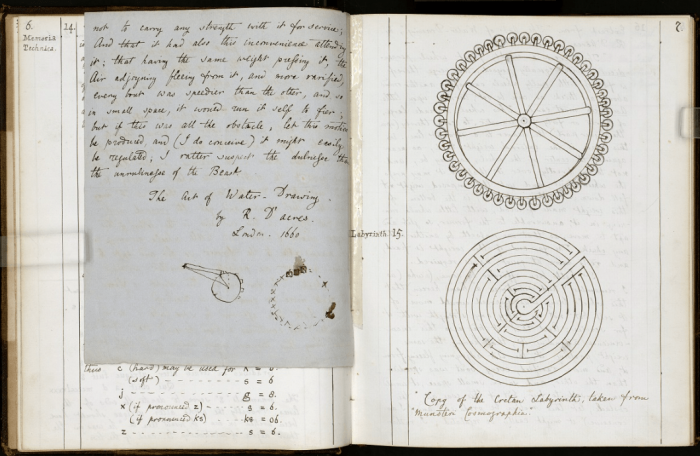 6.
Memoria
Technica.
24.
not to carry any strength with it for service;
And that it had also this inconvenience attending
it; that having the same weight pressing it, the
Air adjoyning fleeing from it, and more rarified,
every bout was speedier than the other, and so
in small space, it would run it self to fier;
but if this was all the obstacle, let this motion
be produced, and (I do conceive) it might easily
be regulated, I rather suspect the dulnesse than
the unrulinesse of the Beast
The Art of Water-Drawing.
by R. D'acres.
London. 1660
thus c (hard) may be used for k = 8.
(soft) - - - s = 6
j - - - g = 8.
x (if pronounced z) - - s = 6.
(if pronounced ks) ks = 86.
z - - - s = 6.
7.
Labyrinth. 15.
"Copy of the Cretan Labyrinth, taken from
Munster Cosmographia"